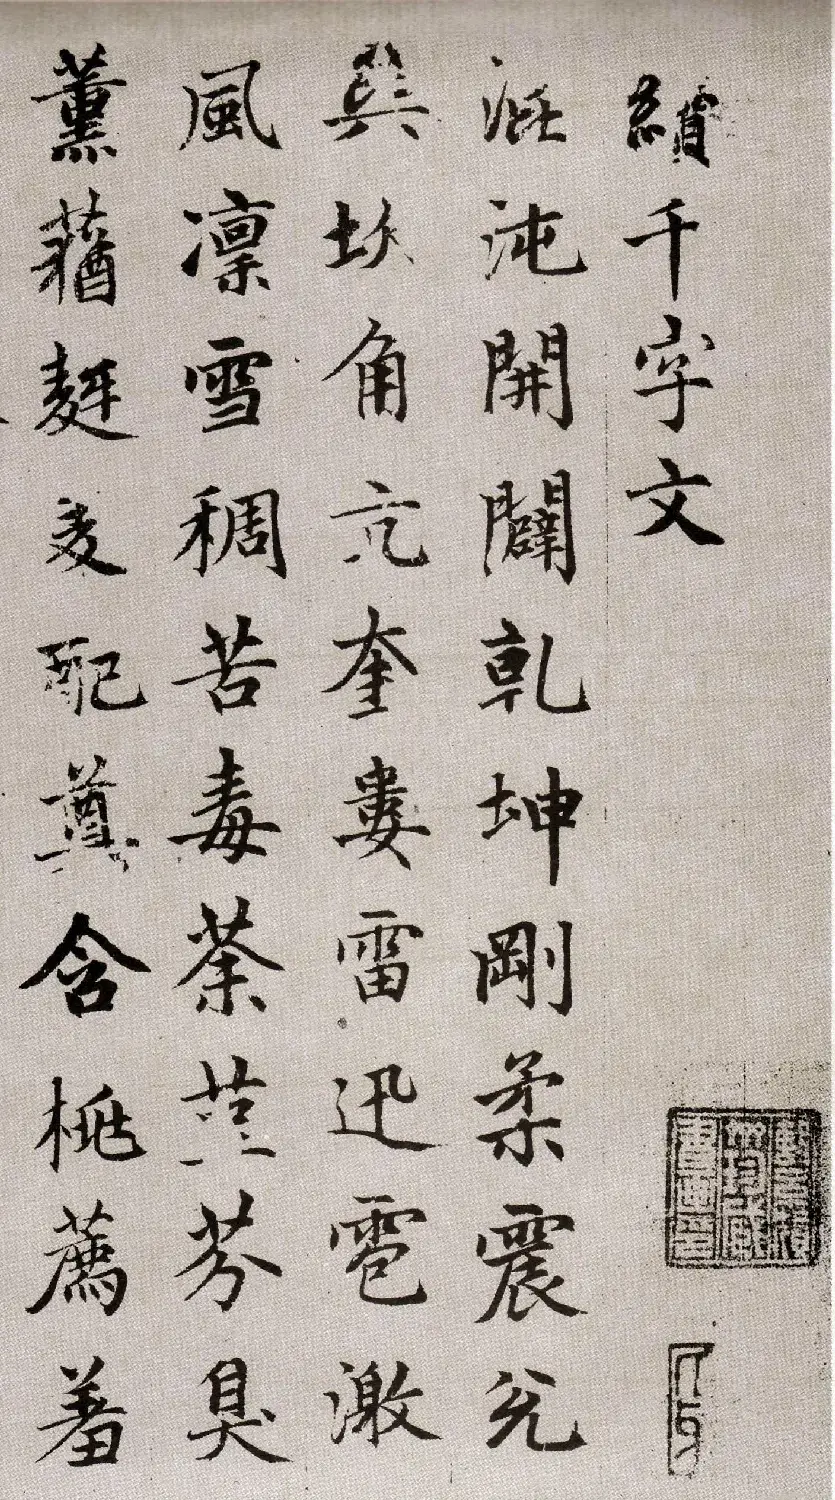 續千字文
混沌開闢乾坤剛柔震兌
巽坎角亢奎婁雷迅雹激
風凛雪稠苦毒荼芬臭
薰蕕麰麥配奠含桃薦羞